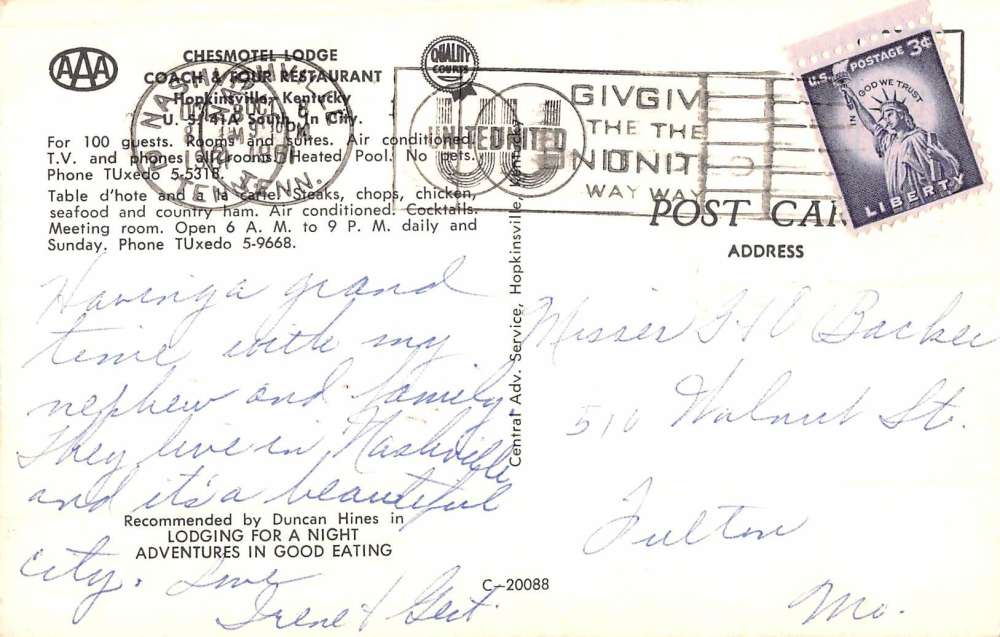 AAA
CHESMOTEL LODGE
COACH & FOUR RESTAURANT
Hopkinsville, Kentucky
U. S. 41A South, In City.
For 100 guests. Rooms and suites. Air conditioned.
T.V. and phones all rooms. Heated Pool. No pets.
Phone TUxedo 5-5318.
Table d'hote and a la carte. Steaks, chops, chicken,
seafood and country ham. Air conditioned. Cocktails.
Meeting room. Open 6 A. M. to 9 P. M. daily and
Sunday. Phone TUxedo 5-9668.
QUALITY
COURTS
NASHVILLE
TENN.
UNITED UNITED
GIVGIV
THE THE
WAY WAY
U.S. POSTAGE 3¢
IN GOD WE TRUST
LIBERTY
POST CAR
ADDRESS
Having a grand
time with my
nephew and family
They live in Nashville
and it's a beautiful
city. Love
Irene & Gert.
Recommended by Duncan Hines in
LODGING FOR A NIGHT
ADVENTURES IN GOOD EATING
Central Adv. Service, Hopkinsville, Kentucky
C-20088
Backer
510 Walnut St.
Fulton
Mo.